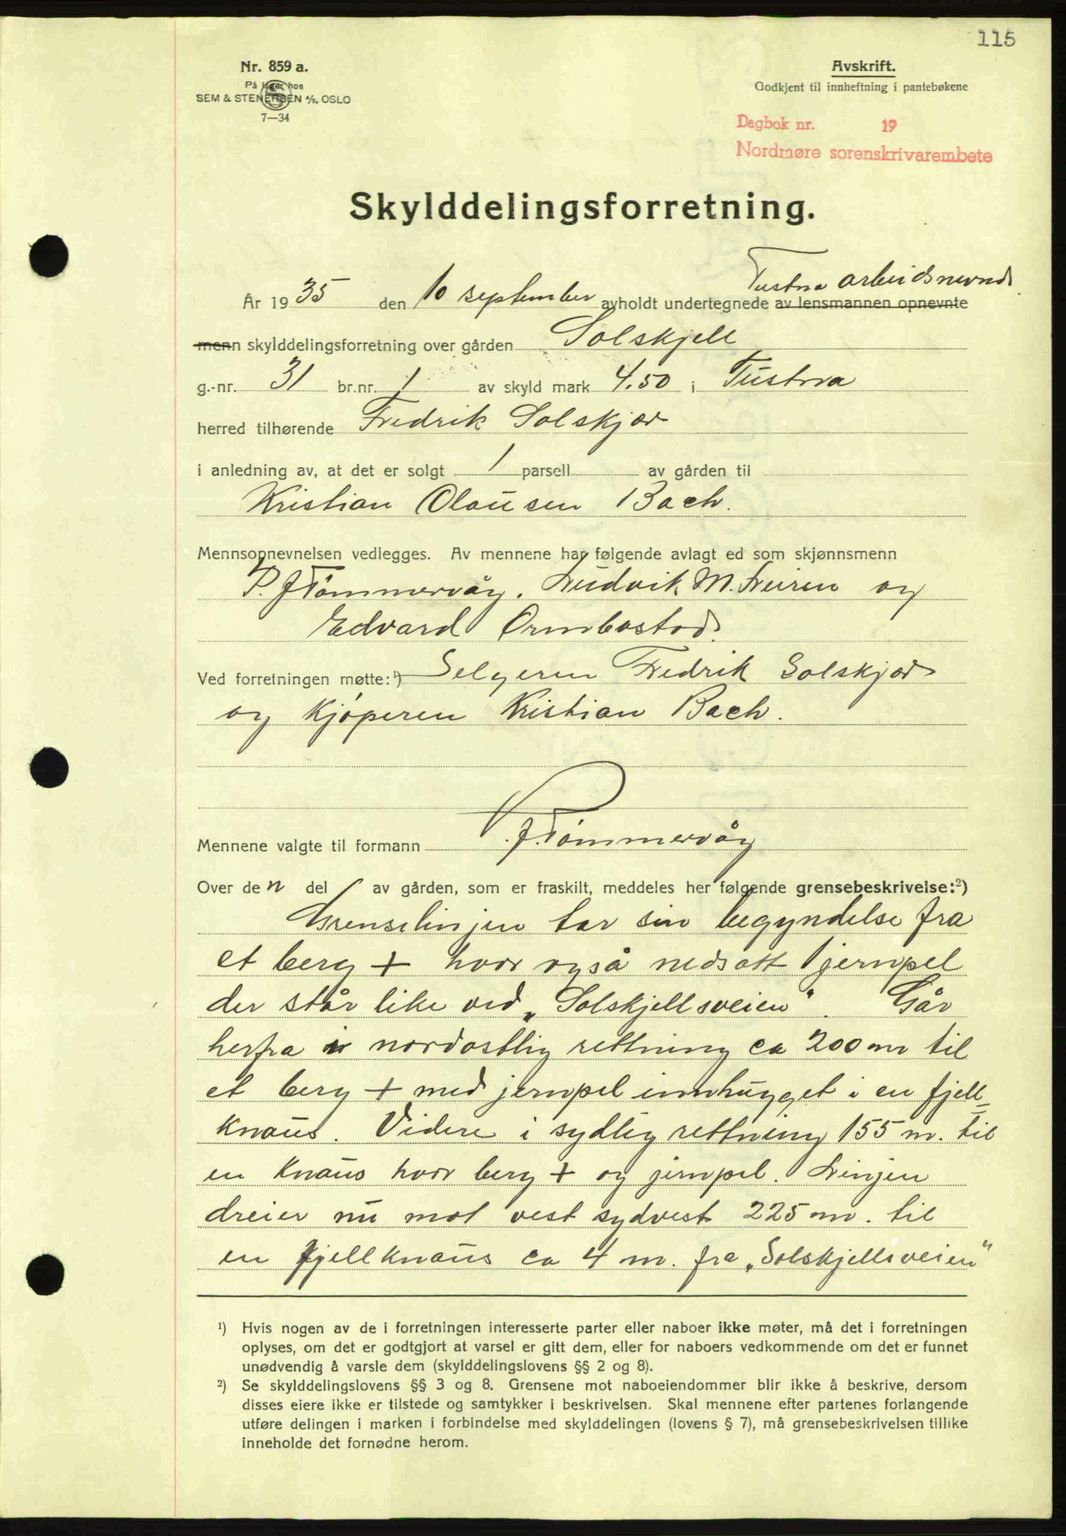 115
Nr. 859 a.
På lager hos
S
SEM & STENERSEN A/S, OSLO
7—34
Avskrift.
Godkjent til innheftning i pantebøkene
Dagbok nr. 19
Nordmøre sorenskrivarembete
Skylddelingsforretning.
Tustna arbeidsnevnd
År 1935 den 10 september avholdt undertegnede av lensmannen opnevnte
menn skylddelingsforretning over gården Solskjell
g.-nr. 31 br.nr. 1 av skyld mark 4.50 i Tustna
herred tilhørende Fredrik Solskjør
i anledning av, at det er solgt 1 parsell av gården til
Kristian Olausen Bach.
Mennsopnevnelsen vedlegges. Av mennene har følgende avlagt ed som skjønnsmenn
P. J Tømmervåg, Ludvik M. Leiren og
Edvard Ormbostad.
Ved forretningen møtte:¹) Selgeren Fredrik Solskjør
og kjøperen Kristian Bach.
Mennene valgte til formann P. J. Tømmervåg
Over den del av gården, som er fraskilt, meddeles her følgende grensebeskrivelse:²)
Grenselinjen tar sin begyndelse fra
et berg + hvor også nedsatt 1 jernpel
der står like ved „Solskjellsveien". Går
herfra i nordostlig rettning ca 200 m til
et berg + med jernpel innhugget i en fjell=
knaus. Videre i sydlig rettning 155 m. til
en knaus hvor berg + og jernpel. Linjen
dreier nu mot vest sydvest 225 m. til
en fjellknaus ca 4 m. fra „Solskjellsveien"
¹) Hvis nogen av de i forretningen interesserte parter eller naboer ikke møter, må det i forretningen
oplyses, om det er godtgjort at varsel er gitt dem, eller for naboers vedkommende om det er funnet
unødvendig å varsle dem (skylddelingslovens §§ 2 og 8).
²) Se skylddelingslovens §§ 3 og 8. Grensene mot naboeiendommer blir ikke å beskrive, dersom
disses eiere ikke er tilstede og samtykker i beskrivelsen. Skal mennene efter partenes forlangende
utføre delingen i marken i forbindelse med skylddelingen (lovens § 7), må grensebeskrivelsen tillike
inneholde det fornødne herom.